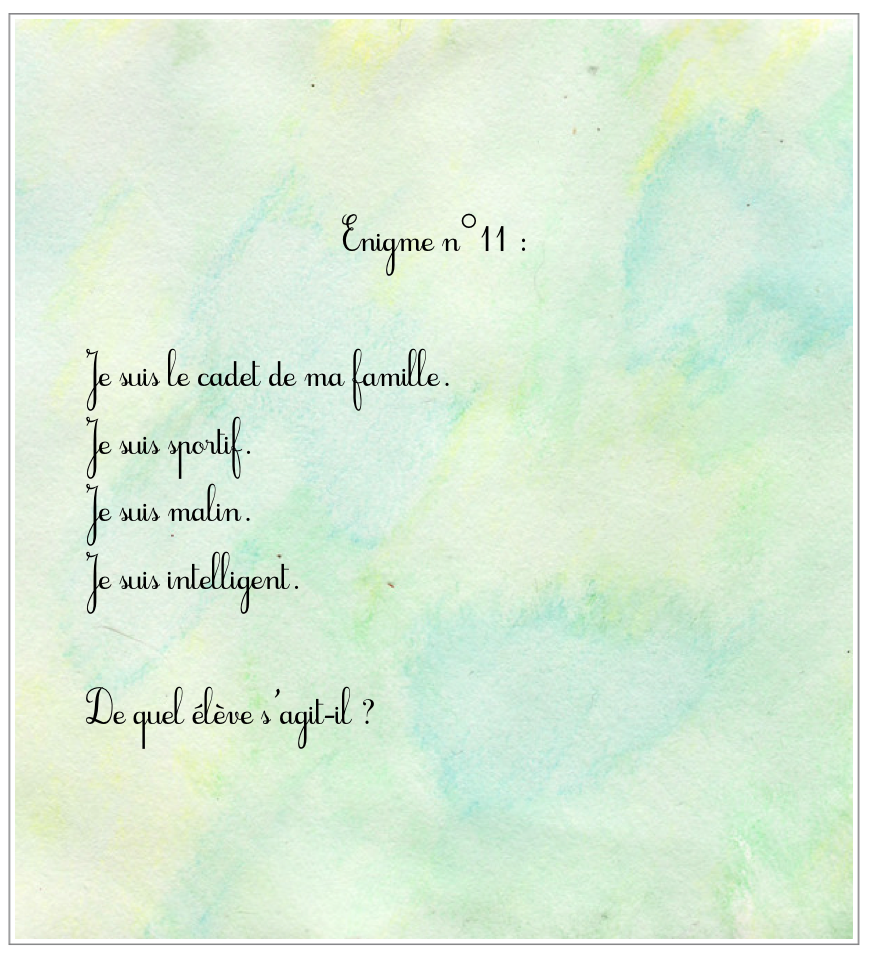 Enigme n°11 :
Je suis le cadet de ma famille.
Je suis sportif.
Je suis malin.
Je suis intelligent.
De quel élève s'agit-il ?